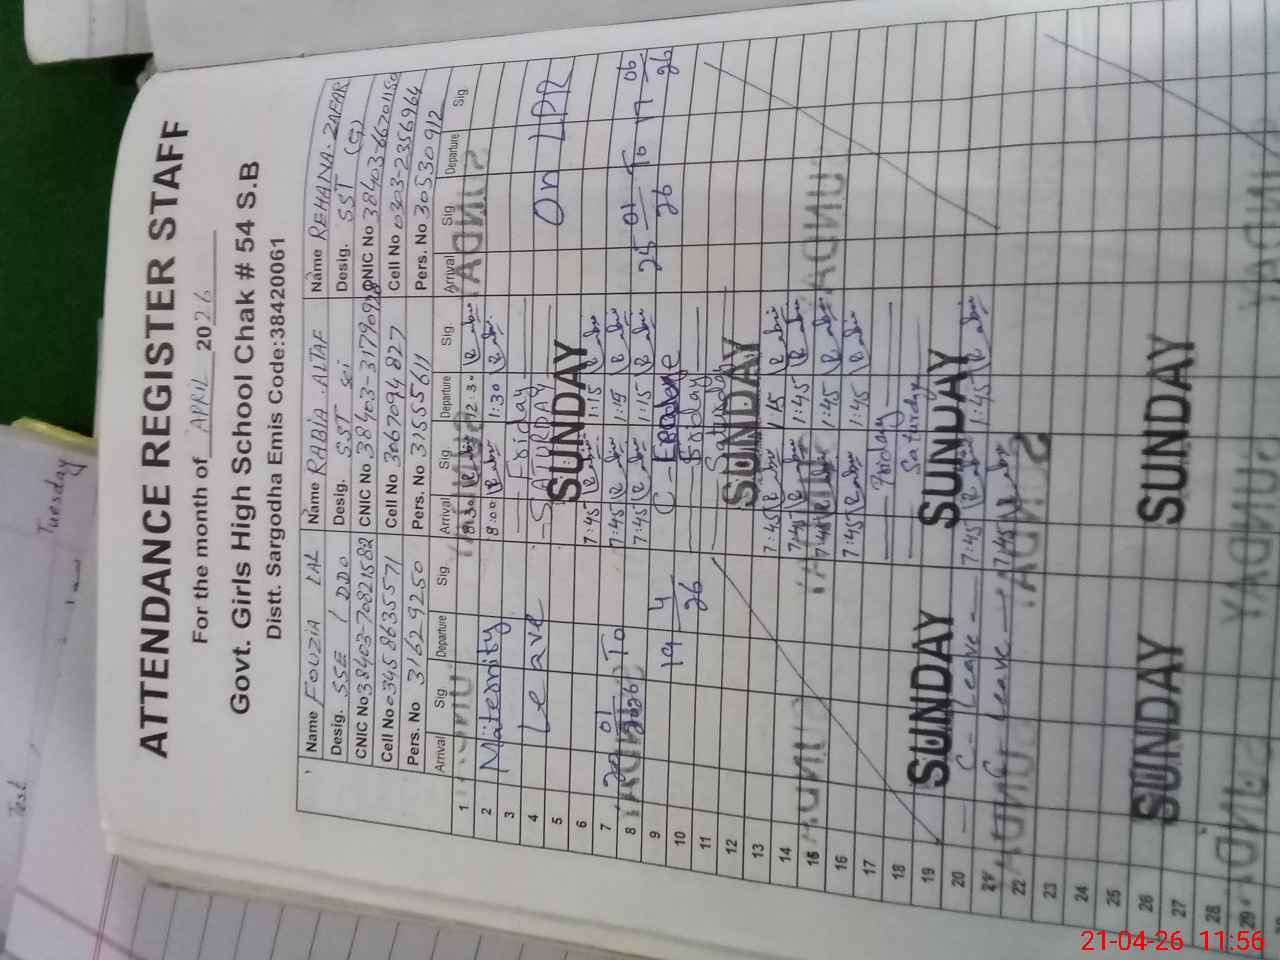 Tuesday
Test
ATTENDANCE REGISTER STAFF
For the month of APRIL 2026
Govt. Girls High School Chak # 54 S.B
Distt. Sargodha Emis Code:38420061
Name FOUZIA LAL
Desig. SSE / DDO
CNIC No 38403-70821582
Cell No 03458635571
Pers. No 31629250
Arrival Sig. Departure Sig.
Name RABIA ALTAF
Desig. SST Sci
CNIC No 38403-3179092
Cell No 3067094827
Pers. No 31555611
Arrival Sig Departure Sig.
Name REHANA ZAFAR
Desig. SST (G)
CNIC No 38403-6670115
Cell No 0303-2356964
Pers. No 30530912
Arrival Sig Departure Sig.
1 8:30 12:30
2 Maternity 8:00 1:30
3 Friday
4 Leave SATURDAY On LPR
5 SUNDAY
6 7:45 1:15
7 To 7:45 1:15
8 7:45 1:15 25 01/26 To 17 06/26
9 C-
10 19 4/26 Friday
11 Saturday
12 SUNDAY
13 7:45 1:15
14 7:45 1:45
15 7:45 1:45
16 7:45 1:45
17 Friday
18 Saturday
19 SUNDAY SUNDAY
20 C - Leave - 7:45 1:45
21 C - Leave 7:45
22
23
24
25
26 SUNDAY SUNDAY
27
28
29
21-04-26 11:56